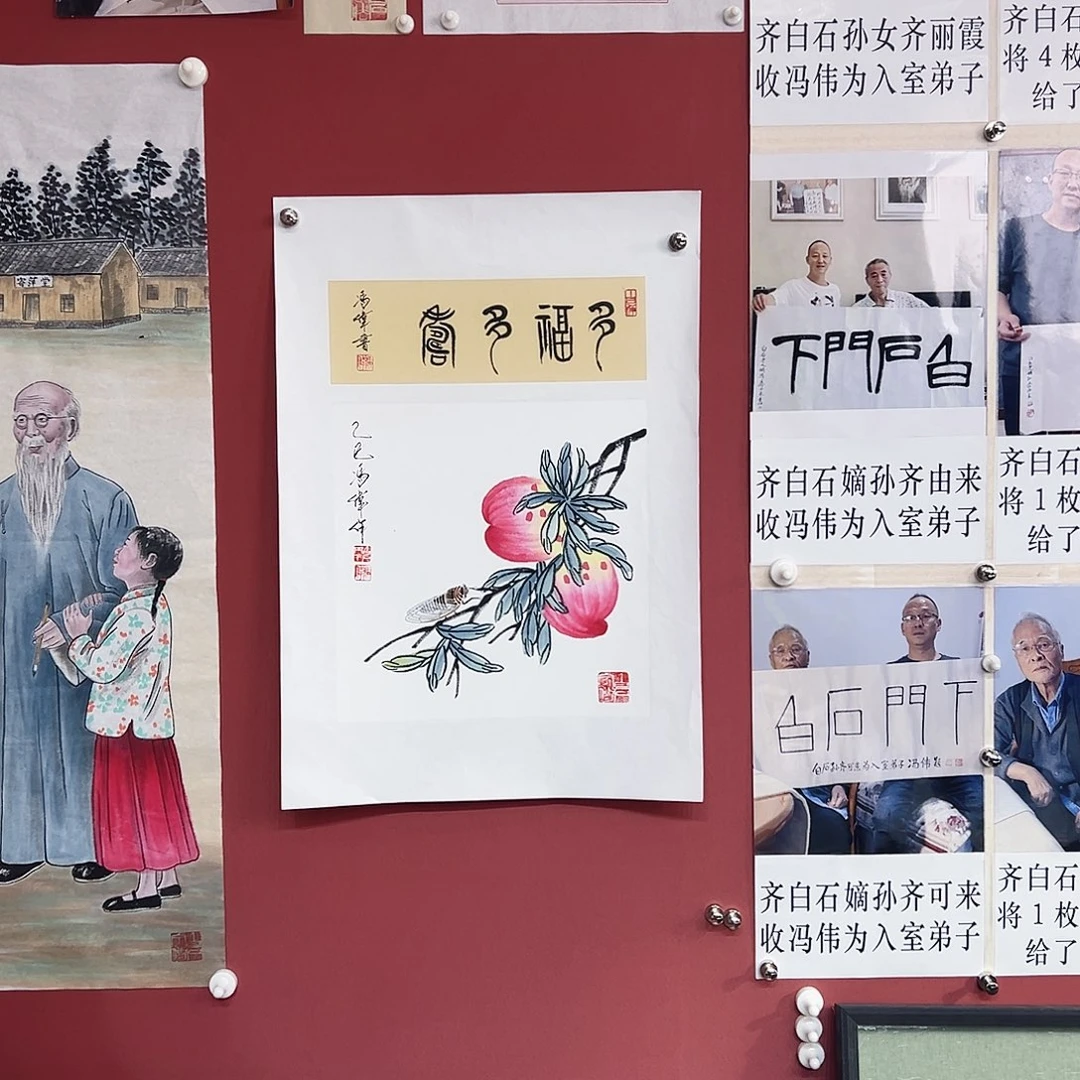 寄萍堂
多福多壽
馮偉書
乙巳馮偉作
齐白石孙女齐丽霞
收冯伟为入室弟子
白石門下
齐白石嫡孙齐由来
收冯伟为入室弟子
白石門下
齐白石嫡孙齐可来
收冯伟为入室弟子
齐白石
将4枚
给了
齐白石
将1枚
给了
齐白石
将1枚
给了